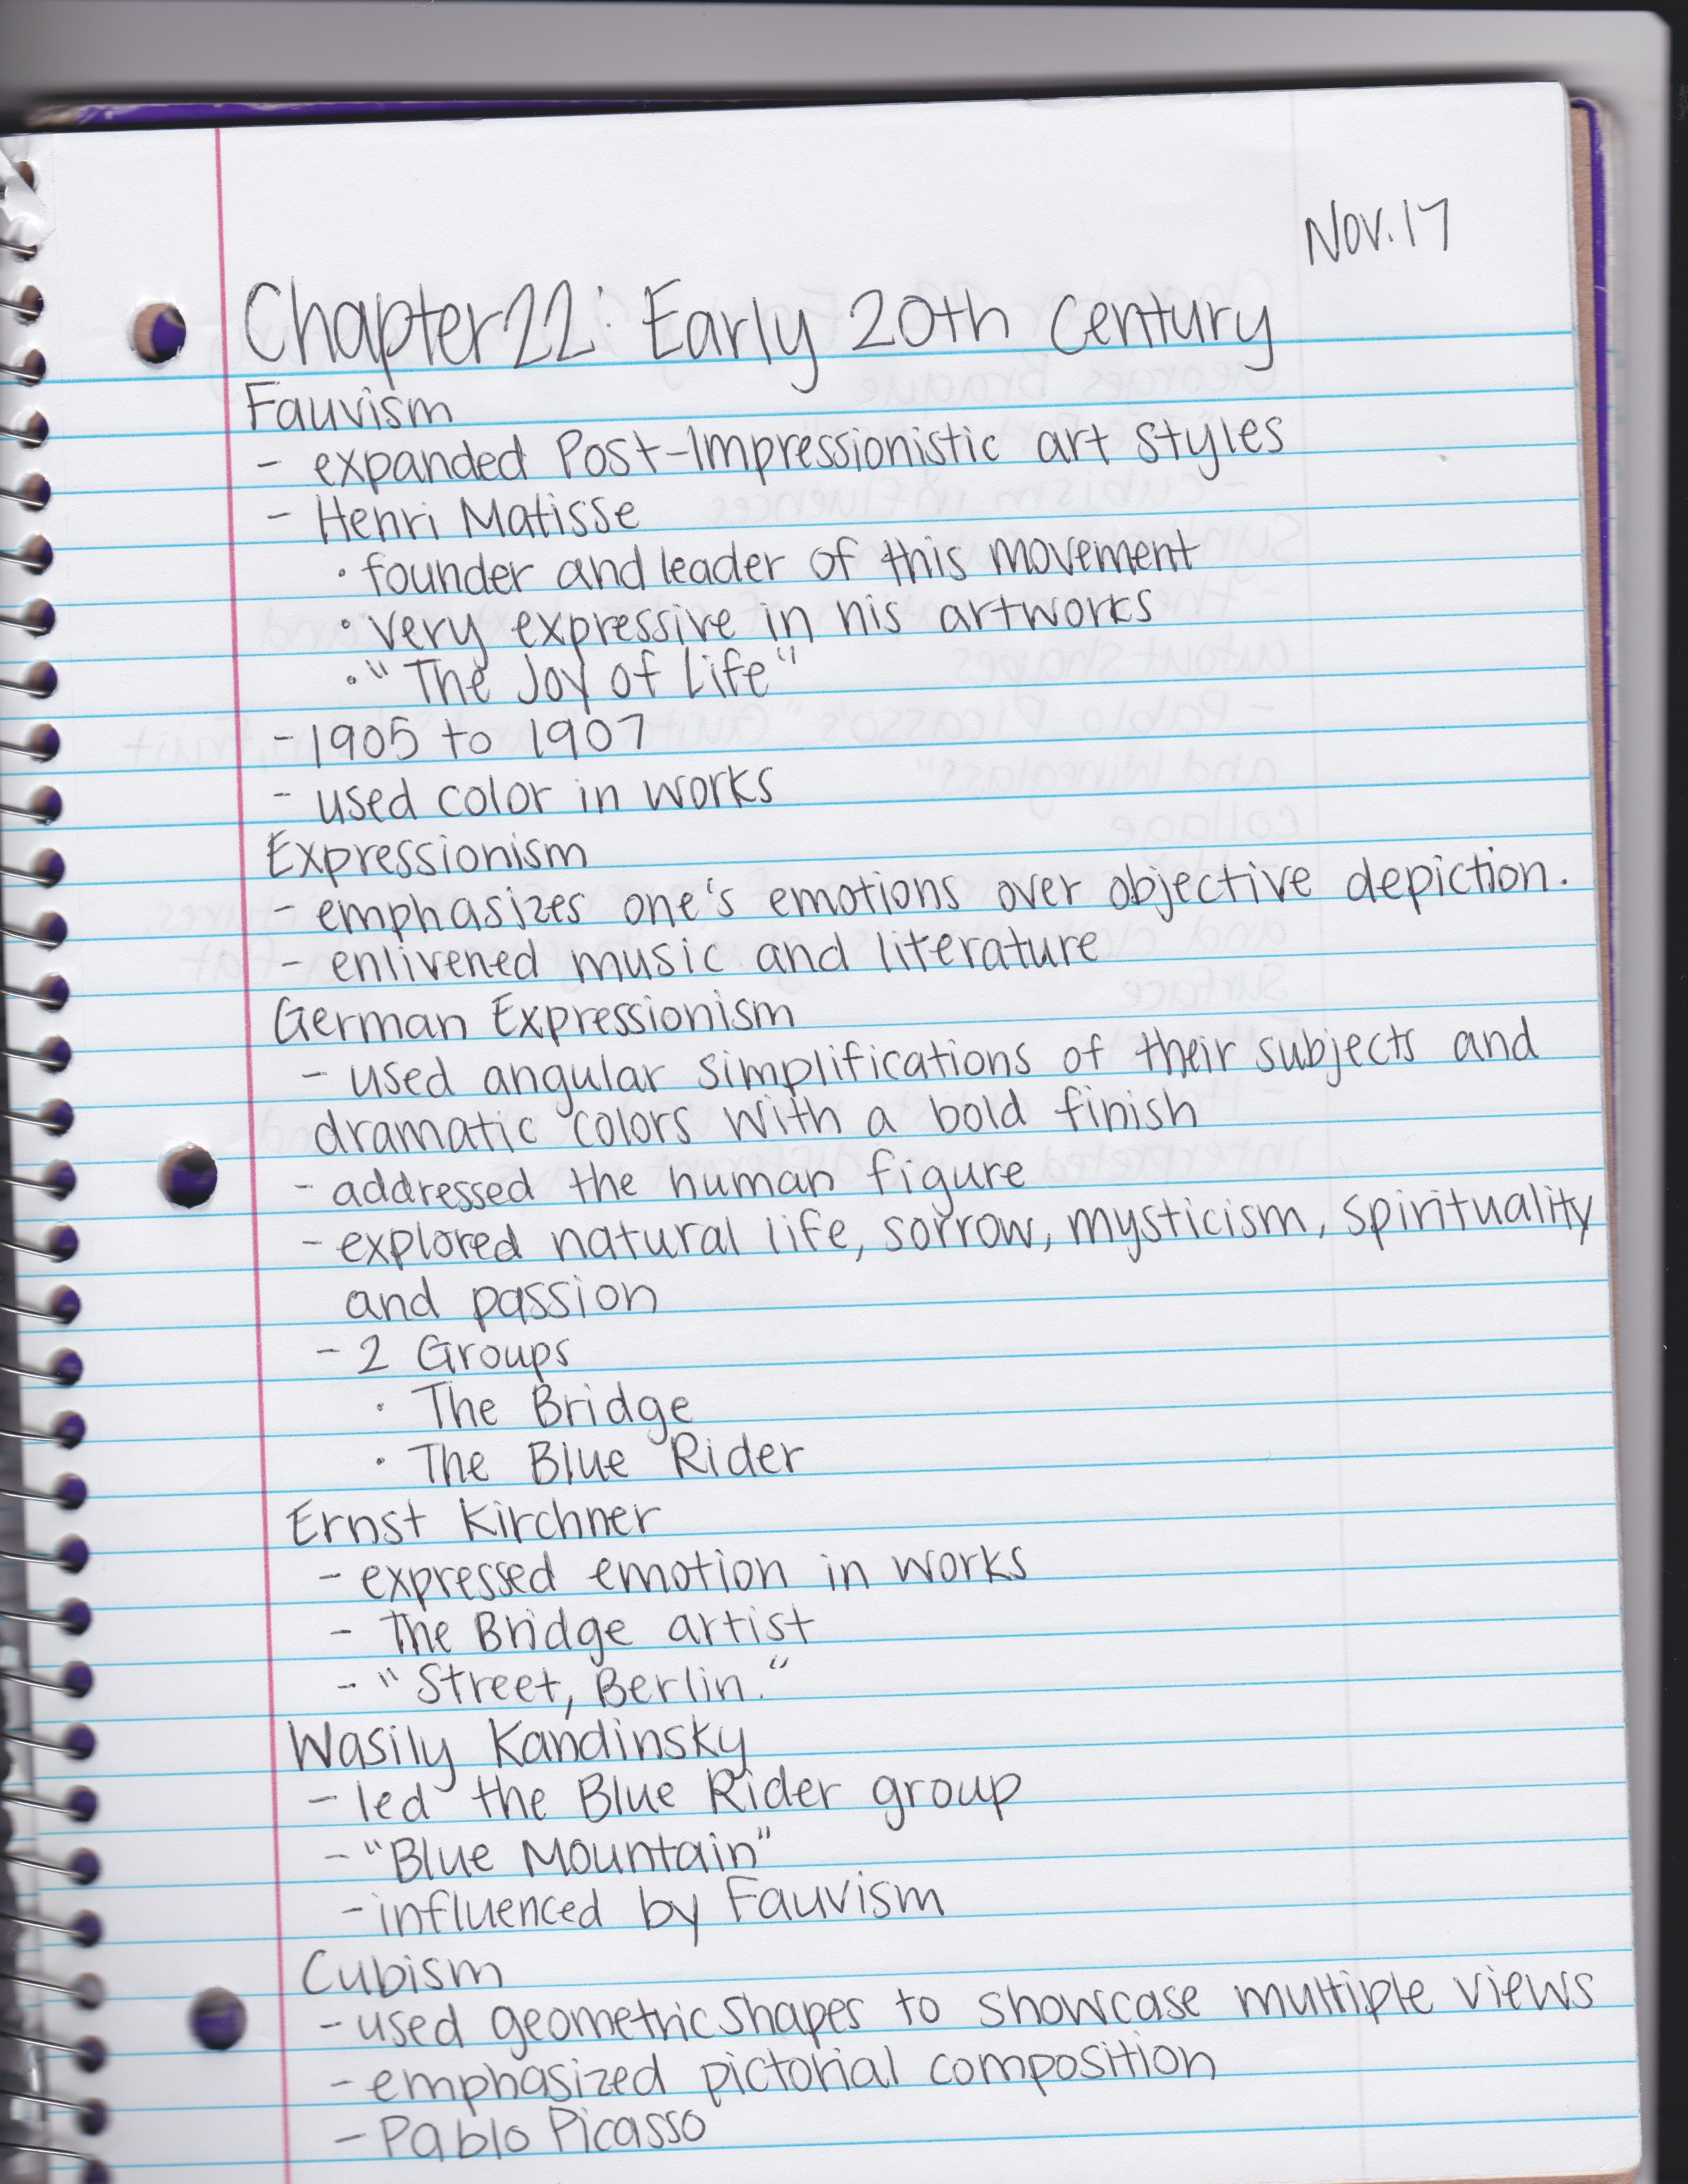 Nov. 17
Chapter 22: Early 20th Century
Fauvism
- expanded Post-Impressionistic art styles
- Henri Matisse
· founder and leader of this movement
· very expressive in his artworks
· "The Joy of Life"
- 1905 to 1907
- used color in works
Expressionism
- emphasizes one's emotions over objective depiction.
- enlivened music and literature
German Expressionism
- used angular simplifications of their subjects and
dramatic colors with a bold finish
- addressed the human figure
- explored natural life, sorrow, mysticism, spirituality
and passion
- 2 Groups
· The Bridge
· The Blue Rider
Ernst Kirchner
- expressed emotion in works
- The Bridge artist
- "Street, Berlin."
Wasily Kandinsky
- led the Blue Rider group
- "Blue Mountain"
- influenced by Fauvism
Cubism
- used geometric shapes to showcase multiple views
- emphasized pictorial composition
- Pablo Picasso